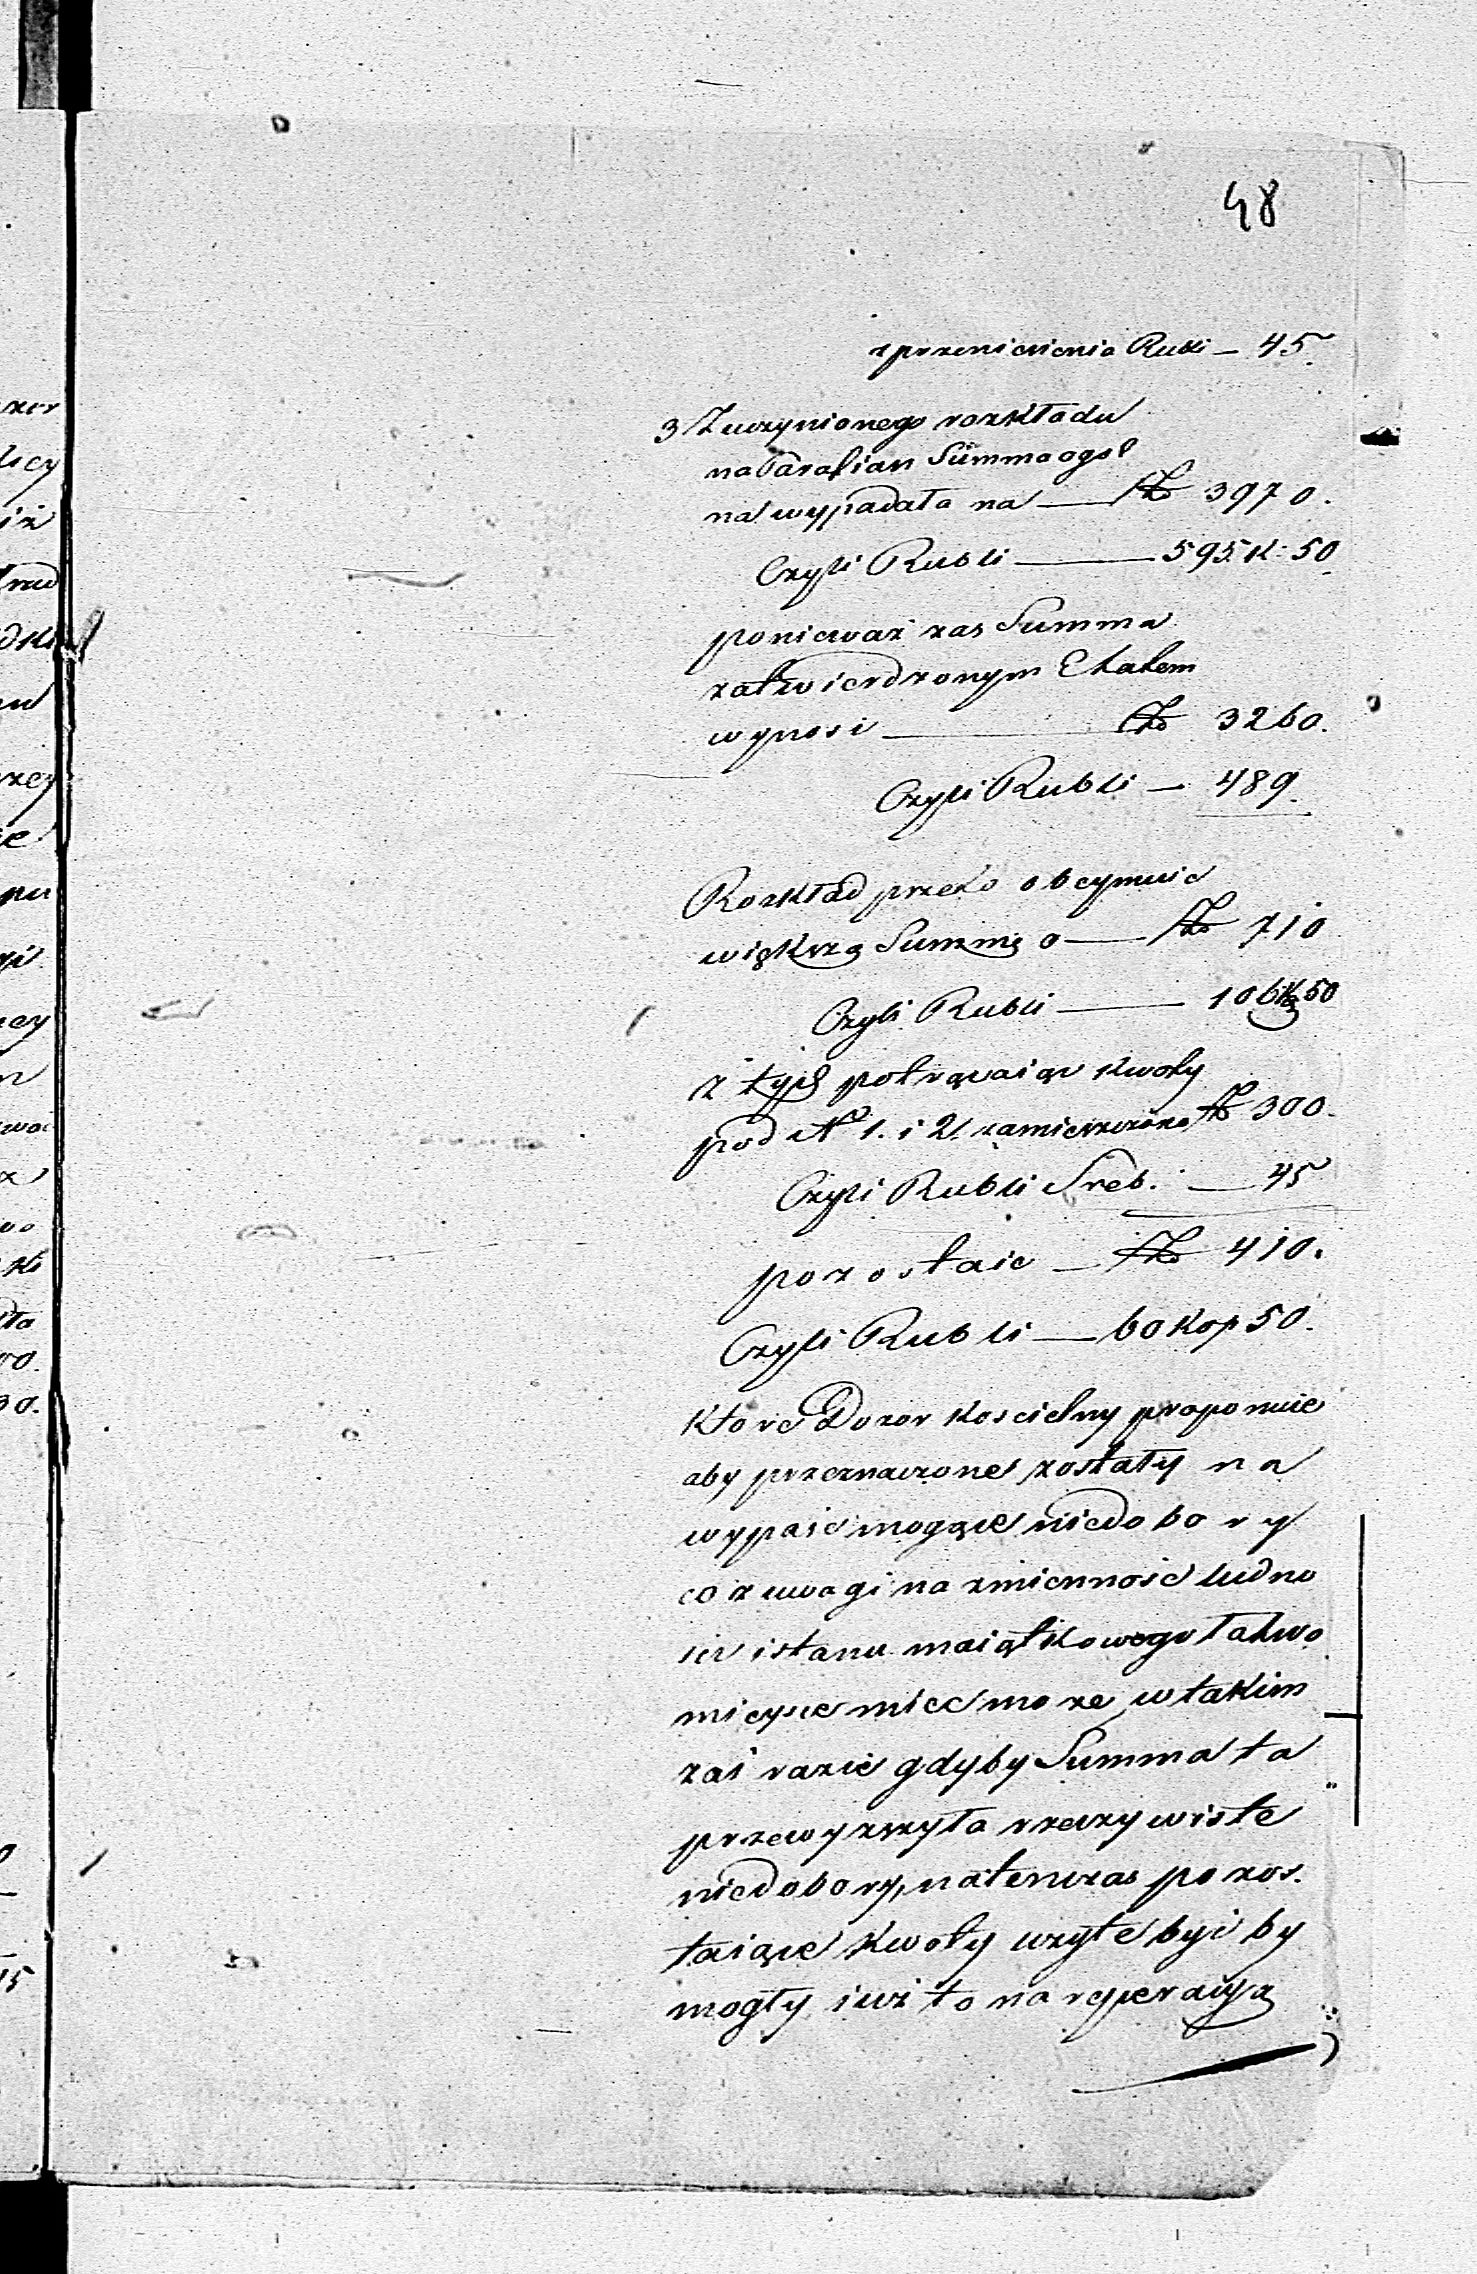 48
z przeniesienia Rubli — 45.
3 Z uczynionego rozkładu
na Parafian Summa ogól
na wypadała na — Złp 3970.
Czyli Rubli — 595. K: 50
ponieważ zas Summa
zatwierdzonym Etatem
wynosi — Złp 3260.
Czyli Rubli — 489.
Rozkład przeto obeymuie
większą Summę o — Złp 710
Czyli Rubli — 106 K 50
z tych potrącaiąc kwoty
pod N 1. i 2. zamieszczone Złp 300.
Czyli Rubli Sreb. — 45
pozostaie — Złp 410.
Czyli Rubli — 60 kop 50.
które Dozor koscielny proponuie
aby przeznaczone zostały na
wypaść mogące niedobory
co z uwagi na zmienność ludno
ści i stanu maiątkowego łatwo
mieysce mieć może, w takim
zaś razie gdyby Summa ta
przewyzszyła rzeczywiste
niedobory, natenczas pozos.
taiące kwoty użyte być by
mogły iuż to na reperacyą